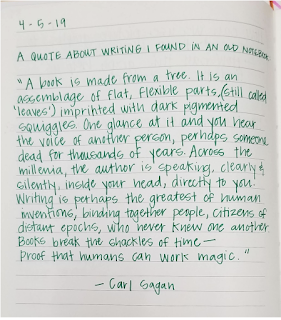 4-5-19
A QUOTE ABOUT WRITING I FOUND IN AN OLD NOTEBOOK
"A book is made from a tree. It is an
assemblage of flat, flexible parts, (still called
'leaves') imprinted with dark pigmented
squiggles. One glance at it and you hear
the voice of another person, perhaps someone
dead for thousands of years. Across the
millenia, the author is speaking, clearly &
silently, inside your head, directly to you.
Writing is perhaps the greatest of human
inventions, binding together people, citizens of
distant epochs, who never knew one another.
Books break the shackles of time—
Proof that humans can work magic."
— Carl Sagan